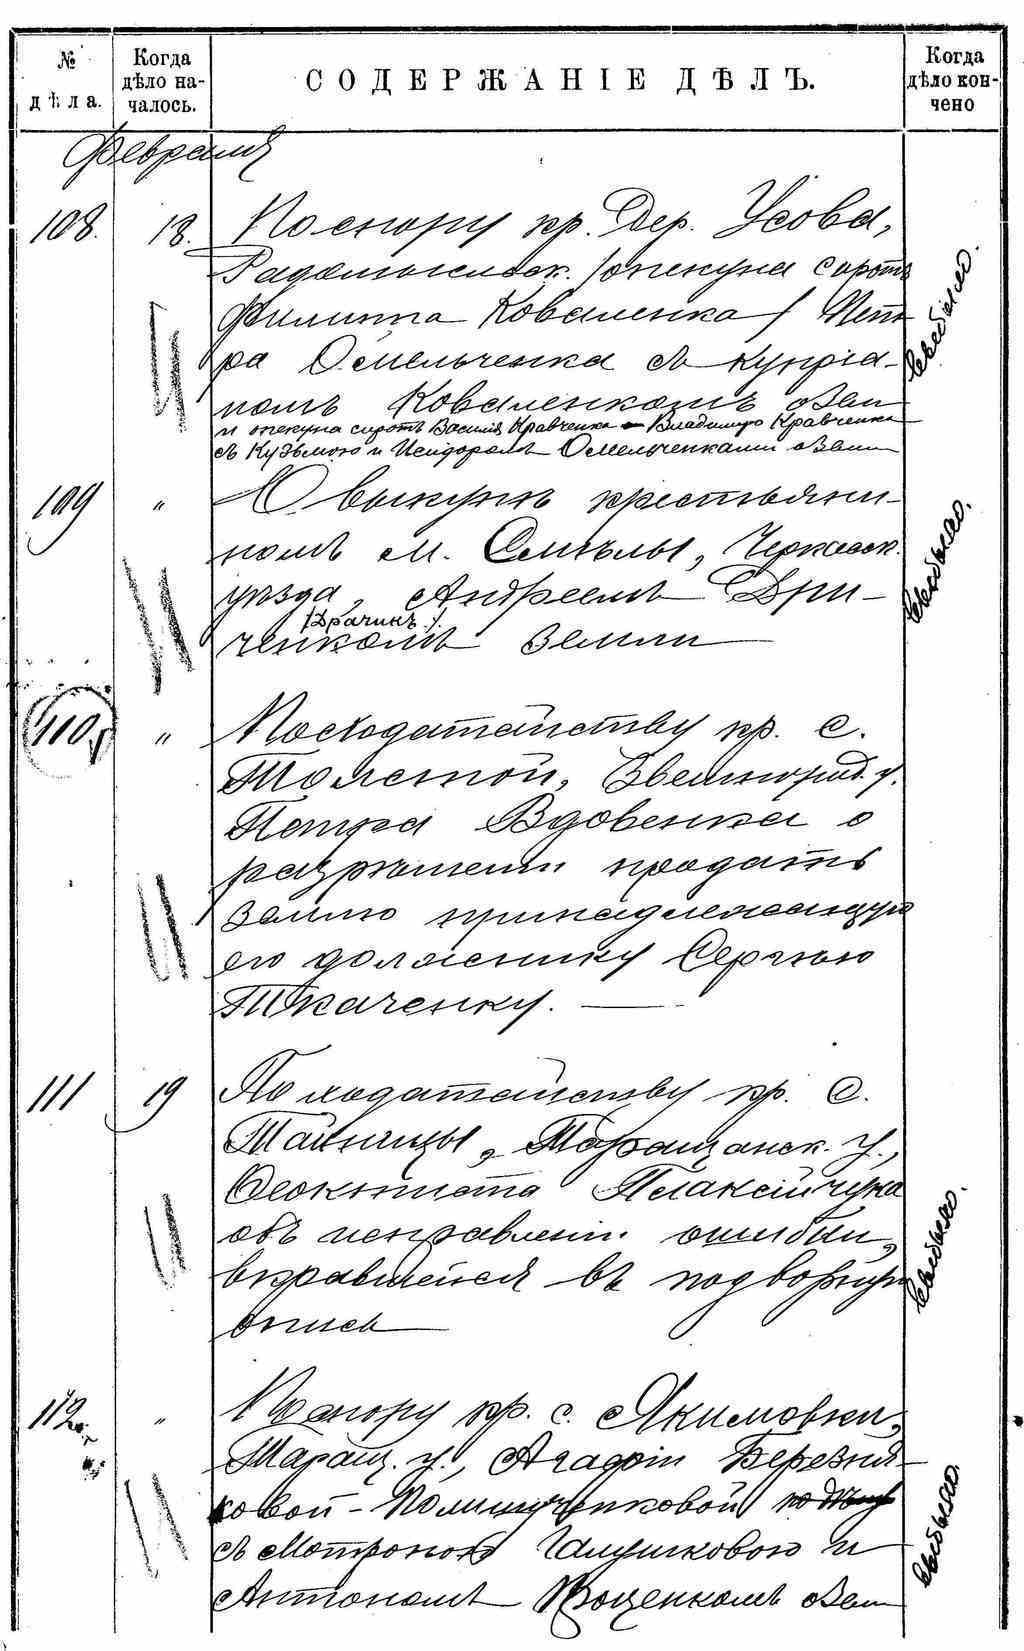 № дѣла.
Когда дѣло на-
чалось.
СОДЕРЖАНІЕ ДѢЛЪ.
Когда дѣло кон-
чено
Февраля
108. 18. По спору кр. Дер. Усова,
Радомысльск. /опекуна сиротъ
Филиппа Коваленка/ Пет-
ра Омельченка съ Купріа-
номъ Коваленкомъ о зем
и опекуна сиротъ Василія Кравченка Владиміро Кравченка
съ Кузьмою и Исидоромъ Омельченками о земл
выбыло.
109 " О выкупѣ крестьяни-
номъ м. Смѣлы, Черкасск.
уѣзда, Андреемъ Дри-
/Драчинъ/.
ченкомъ земли
выбыло.
110. " По ходатайству кр. с.
Толстой, Звенигород. у.
Петра Вдовенка о
разрѣшеніи продать
землю принадлежащую
его должнику Сергѣю
Ткаченку.
111 19 По ходатайству кр. с.
Тайницы, Таращанск. у.,
Феоктиста Плаксійчука
объ исправленіи ошибки,
вкравшейся въ подворную
опись
выбыло.
112. " По спору кр. с. Якимовки,
Таращ. у., Агафіи Березня-
ковой - Полищученковой
съ Мотроною Галушковою и
Антономъ Яценкомъ о зем
выбыло.